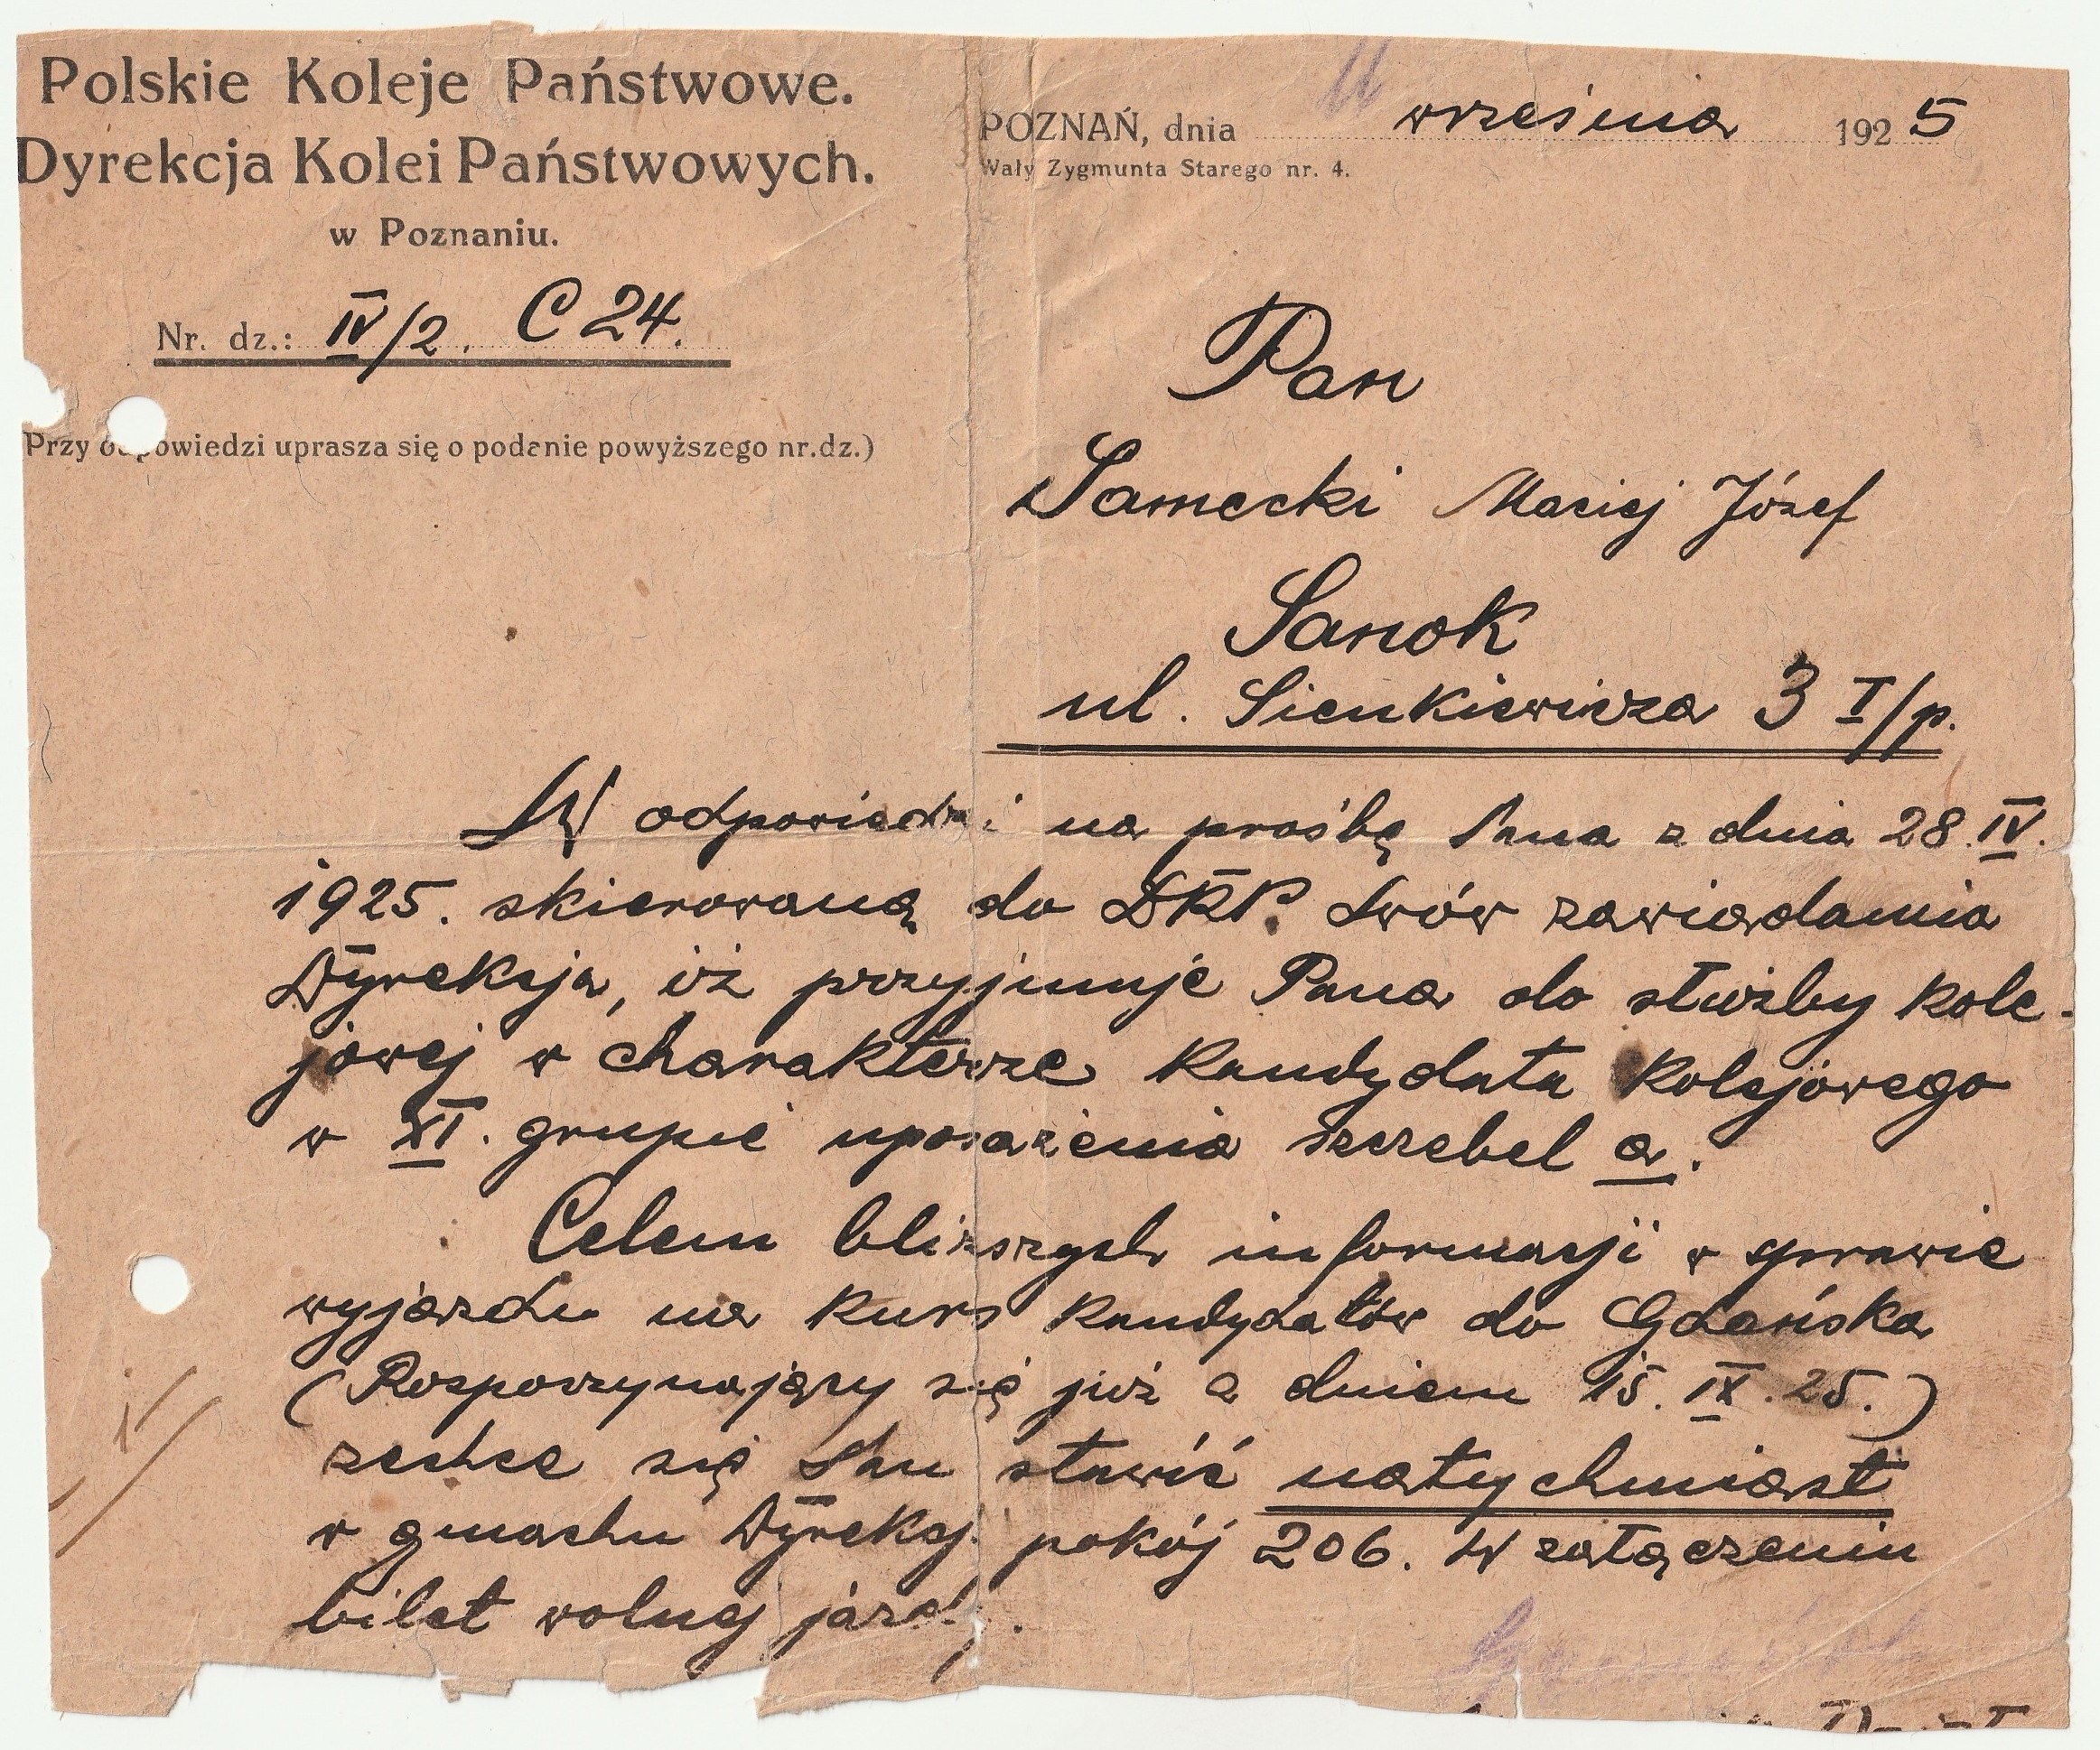 Polskie Koleje Państwowe.
Dyrekcja Kolei Państwowych.
w Poznaniu.
Nr. dz.: IV/2. C 24.
Przy odpowiedzi uprasza się o podanie powyższego nr.dz.)
POZNAŃ, dnia 11 września 1925
Wały Zygmunta Starego nr. 4.
Pan
Samecki Maciej Józef
Sanok
ul. Sienkiewicza 3 I/p.
W odpowiedzi na prośbę Pana z dnia 28.IV.
1925. skierowaną do DKP. Lwów zawiadamia
Dyrekcja, iż przyjmuje Pana do służby kole-
jowej w charakterze kandydata kolejowego
w XI. grupie uposażenia szczebel a.
Celem bliższych informacji w sprawie
wyjazdu na kurs kandydatów do Gdańska
(Rozpoczynający się już z dniem 15. IX. 25.)
zechce się Pan stawić natychmiast
w gmachu Dyrekcj. pokój 206. W załączeniu
bilet wolnej jazdy.